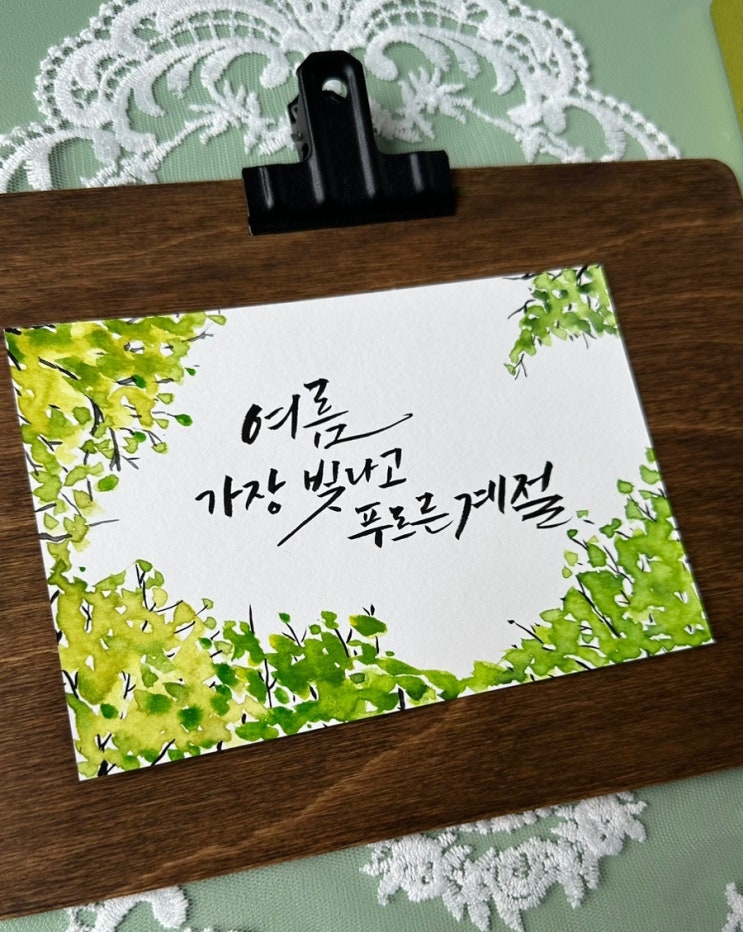 여름
가장 빛나고
푸르른 계절